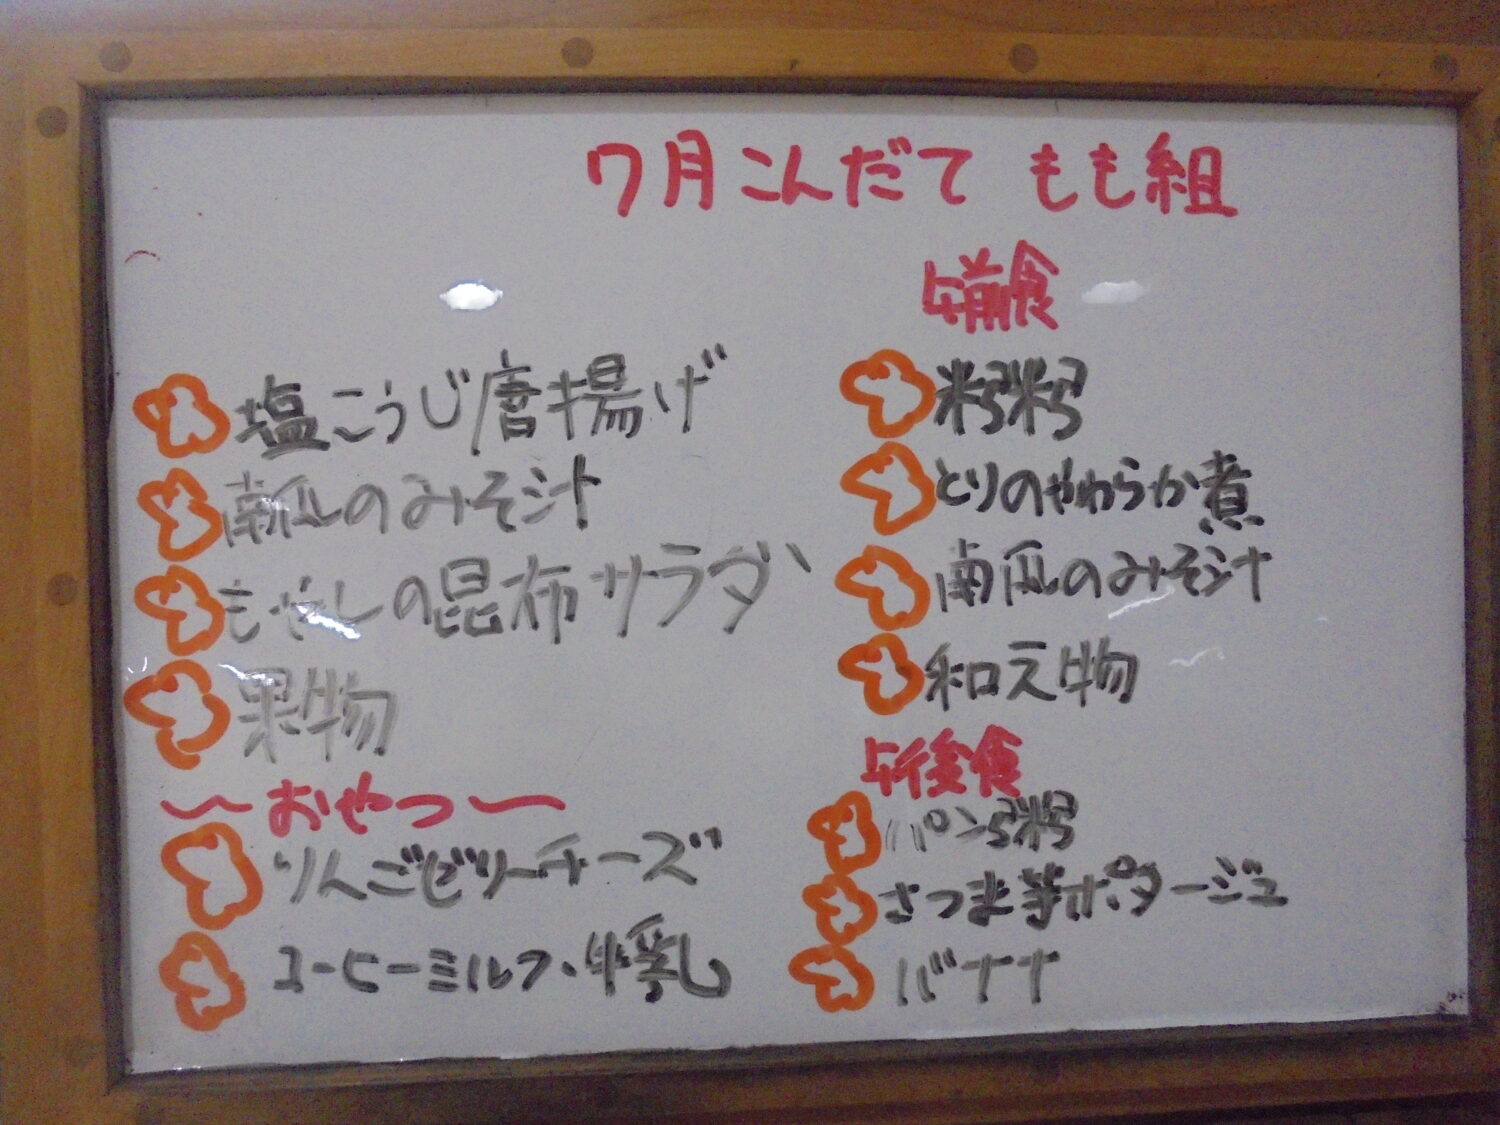 7月こんだて もも組
塩こうじ唐揚げ
南瓜のみそ汁
もやしの昆布サラダ
果物
おやつ
りんごゼリーチーズ
コーヒーミルク、牛乳
午前食
とりのやわらか煮
南瓜のみそ汁
和え物
午後食
パン粥
さつま芋ポタージュ
バナナ